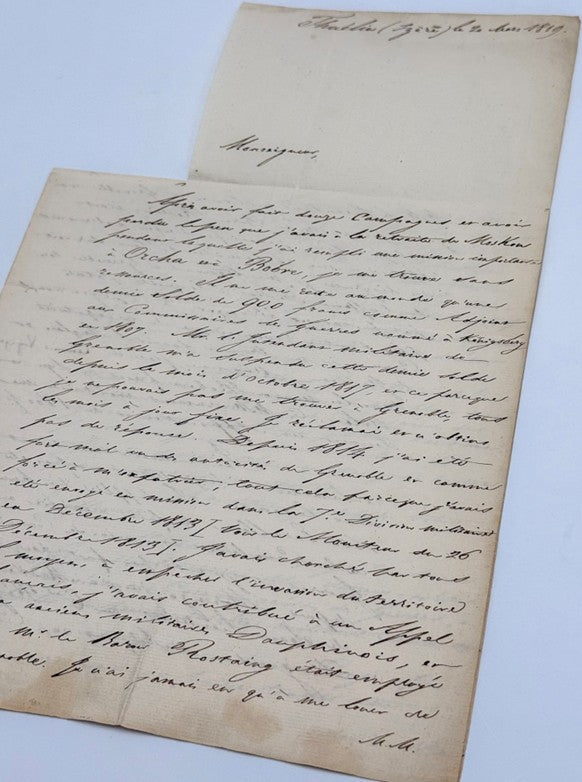 (Isère) le 20 Mars 1819.
Monseigneur,
Après avoir fait douze Campagnes et avoir
perdu le peu que j'avais à la retraite de Moskou
pendant laquelle j'ai rempli une mission importante
à Orcha et à Bobre, je me trouve sans
ressources. Il ne me reste au monde qu'une
demie solde de 900 francs comme Adjoint
aux Commissaires des Guerres nommé à Königsberg
en 1807. Mr. l'Intendant militaire de
Grenoble m'a suspendu cette demie solde
depuis le mois d'Octobre 1817, et ce parceque
je ne pouvais pas me trouver à Grenoble, tous
les mois à jour fixe. Je réclamai et n'obtins
pas de réponse. Depuis 1814 j'ai été
fort mal vu des autorités de Grenoble et comme
forcé à m'expatrier, tout cela parceque j'avais
été envoyé en mission dans la 7e. Division militaire
en Décembre 1813 [Voir le Moniteur du 26
Décembre 1813]. J'avais cherché par tous
moyens à empêcher l'invasion du territoire
j'avais contribué à un Appel
anciens militaires Dauphinois, en
Mr. le Baron Rostaing était employé
Je n'ai jamais eu qu'à me louer de
M. M.